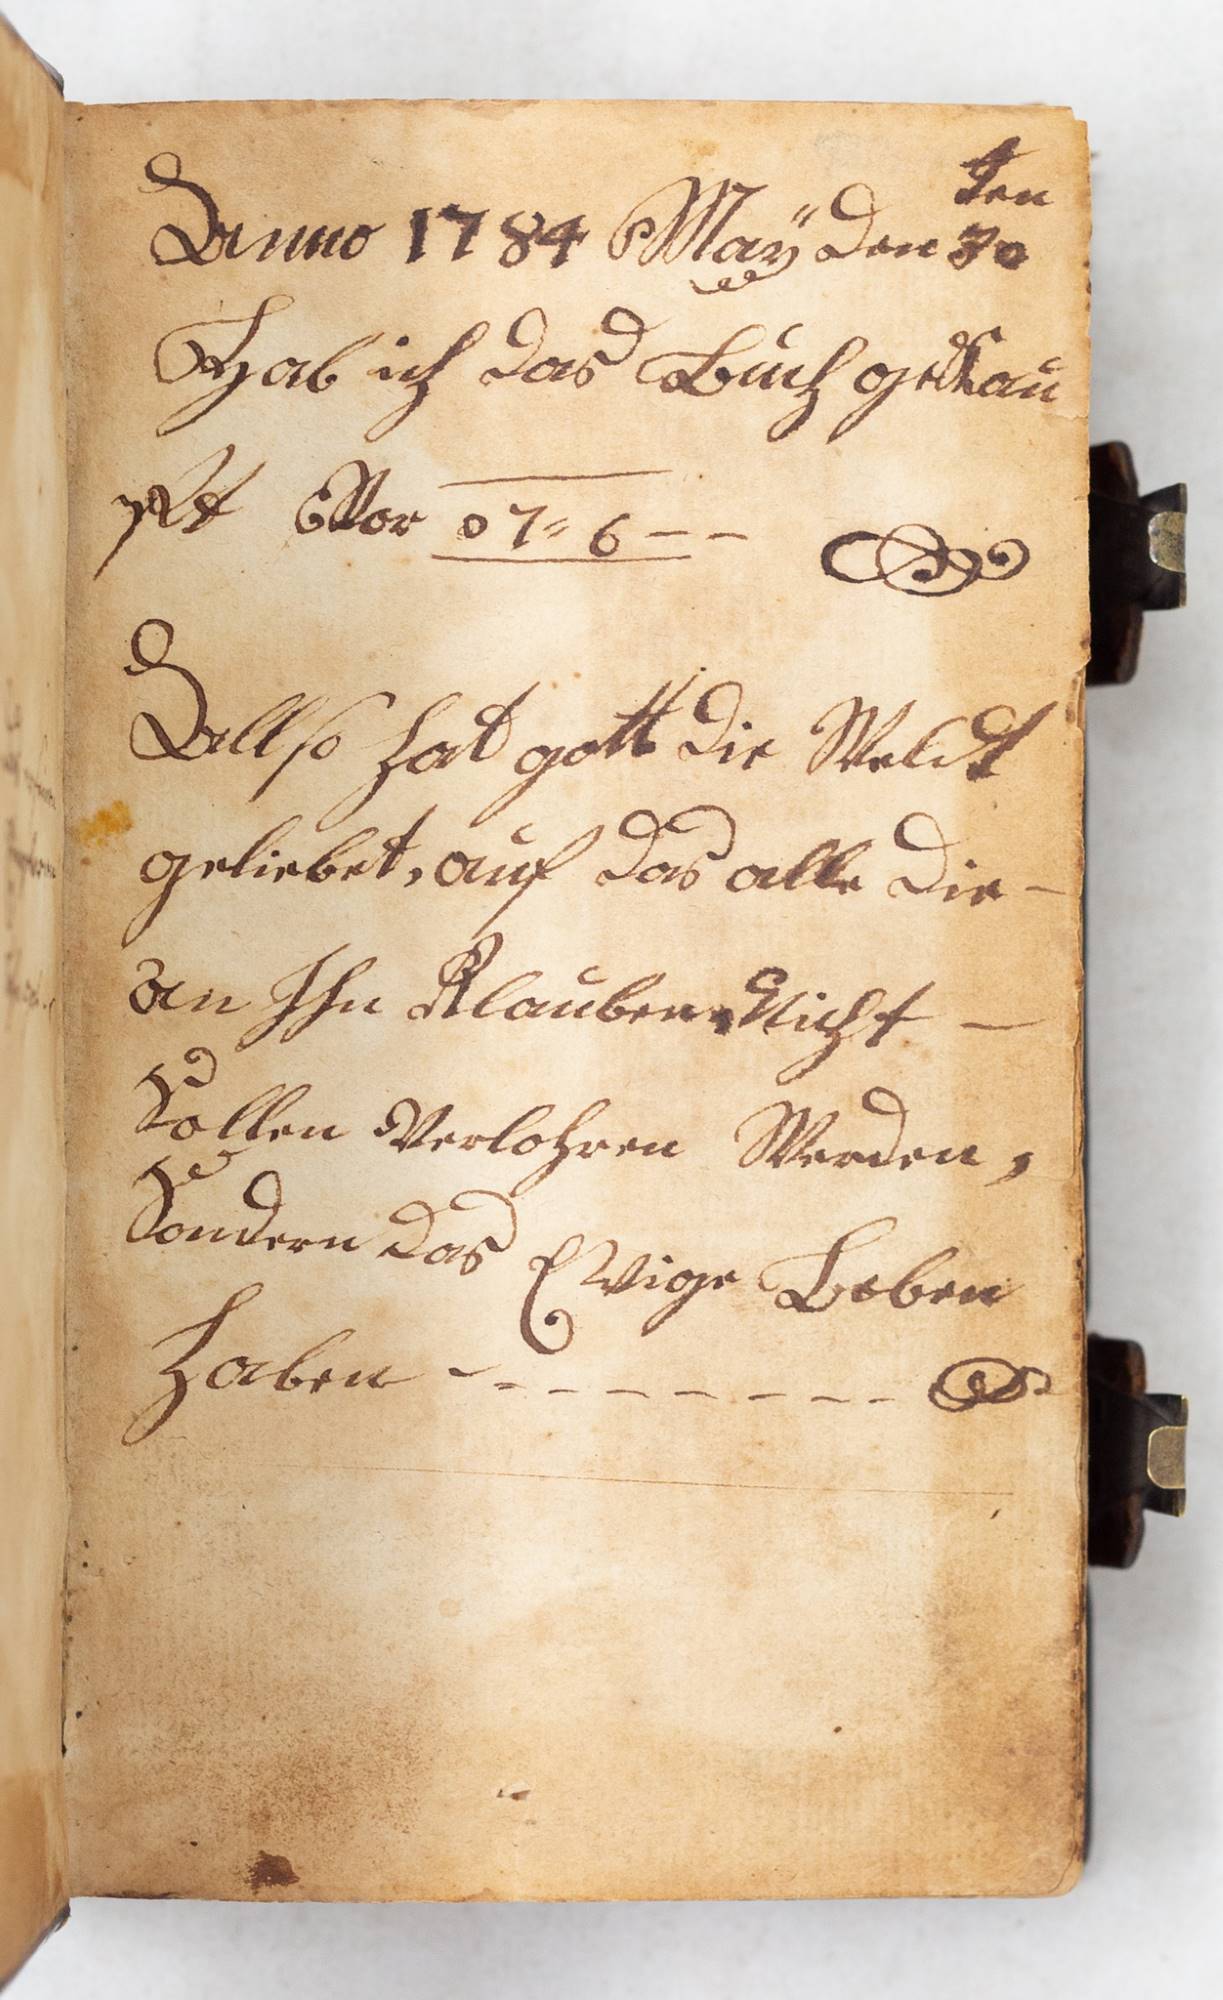 Anno 1784 Maÿ den 30ten
Hab ich das Buch gekau
fft Vor 07=6---
Allso hat gott die Weldt
geliebet, auf das alle die-
an Ihn Klauben, Nicht -
Sollen Verlohren Werden,
Sondern das EWige Leben
haben ---------